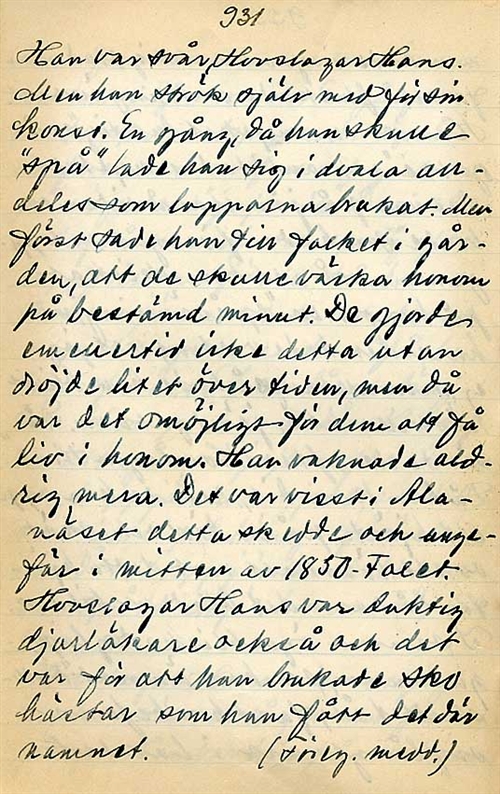 931
Han var svår, Hovslagar Hans.
Men han strök själv med för sin
konst. En gång, då han skulle
"spå" lade han sig i dvala all-
deles som lapparna brukat. Men
först sade han till folket i går-
den, att de skulle väcka honom
på bestämd minut. De gjorde
emellertid icke detta utan
dröjde litet över tiden, men då
var det omöjligt för dem att få
liv i honom. Han vaknade ald-
rig mera. Det var visst i Ala-
näset detta skedde och unge-
fär i mitten av 1850-talet.
Hovslagar Hans var duktig
djurläkare också och det
var för att han brukade sko
hästar som han fått det där
namnet. (Föreg. medd.)